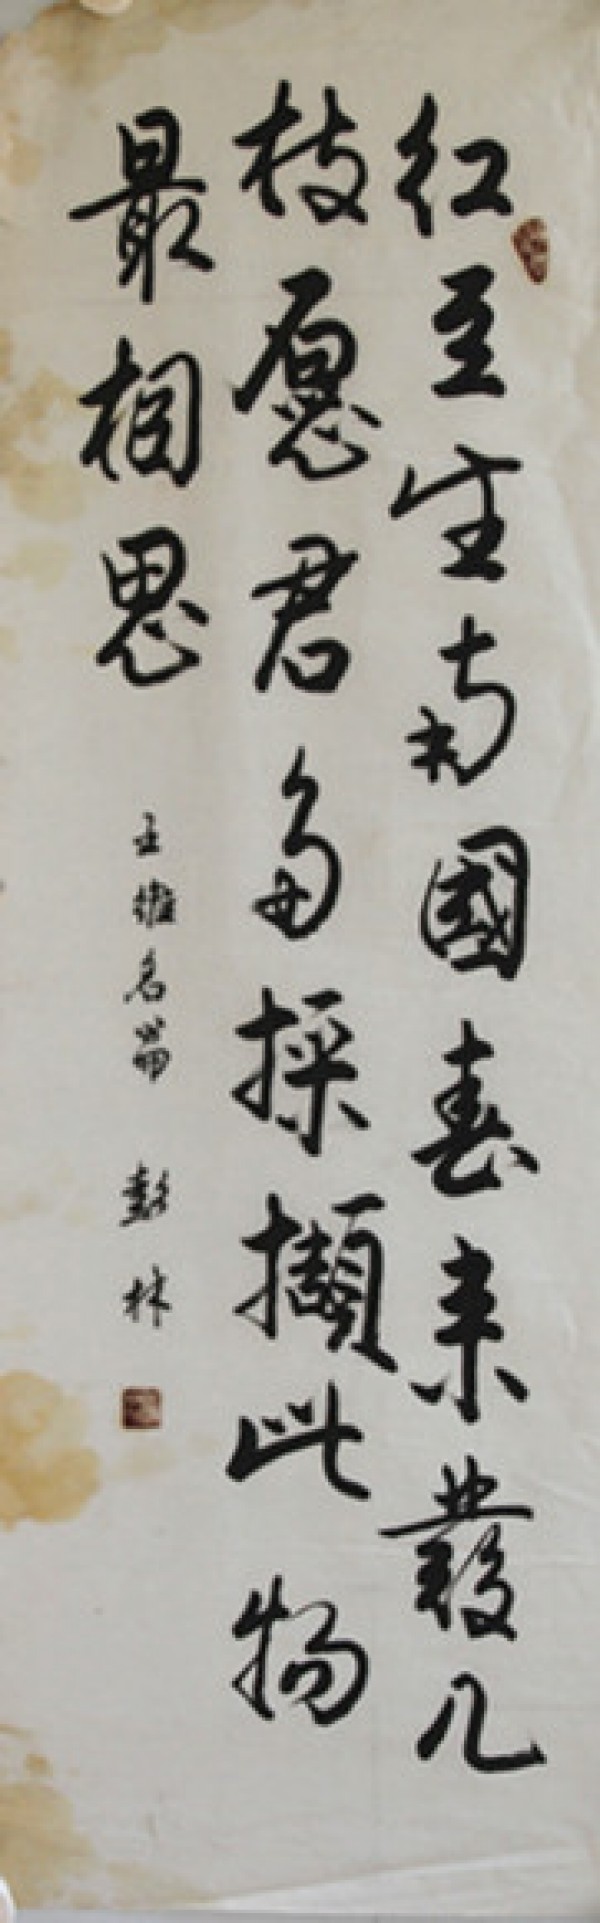 红豆生南國春来發几
枝愿君多採擷此物
最相思
王維名篇 彭林